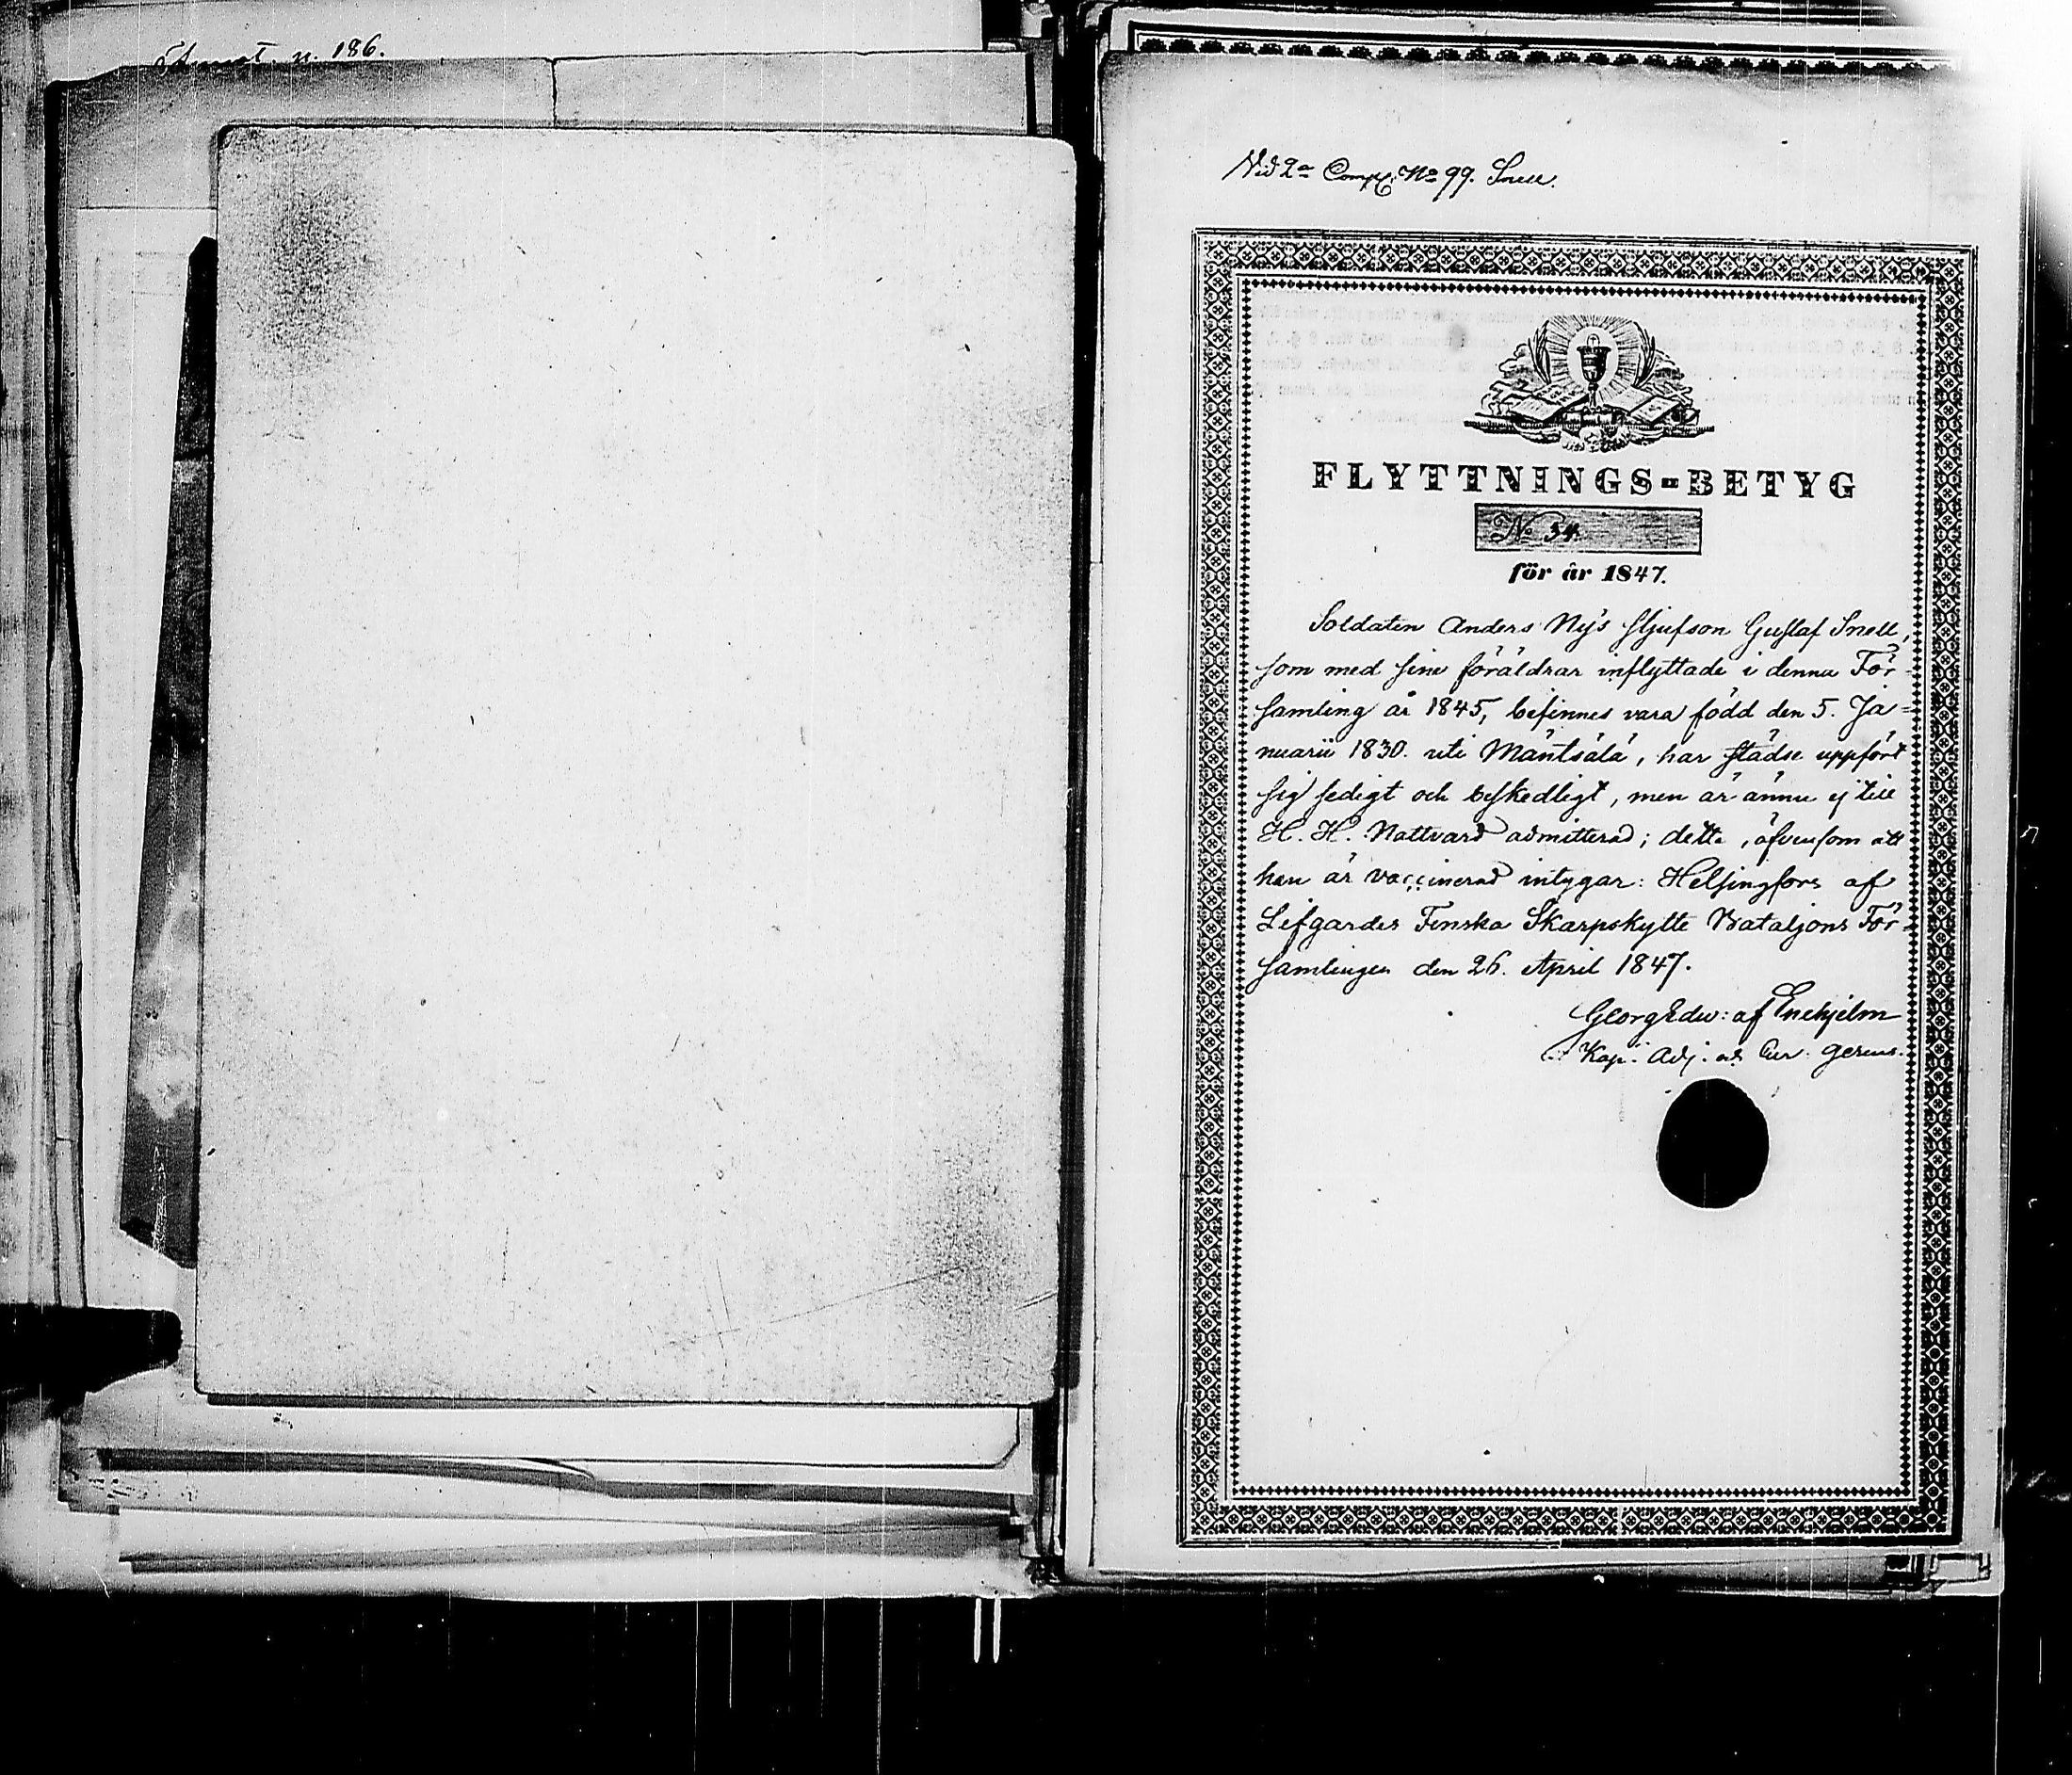 Annot. n. 186.
Vid 2a Comp: No 99. Snell.
FLYTTNINGS-BETYG
No 34.
för år 1847.
Soldaten Anders Ny's stjufson Gustaf Snell,
som med sine föräldrar inflyttade i denna För-
samling år 1845, befinnes vara född den 5. Ja-
nuarii 1830. uti Mäntsälä, har städse uppfört
sig sedigt och beskedligt, men är ännu ej till
H. H. Nattvard admitterad; detta, äfvensom att
han är vaccinerad intygar: Helsingfors af
Lifgardes Finska Skarpskytte Bataljons För-
samlingen den 26. April 1847.
Georg Edw: af Enehjelm
Kap. Adj. Cur. gerens.